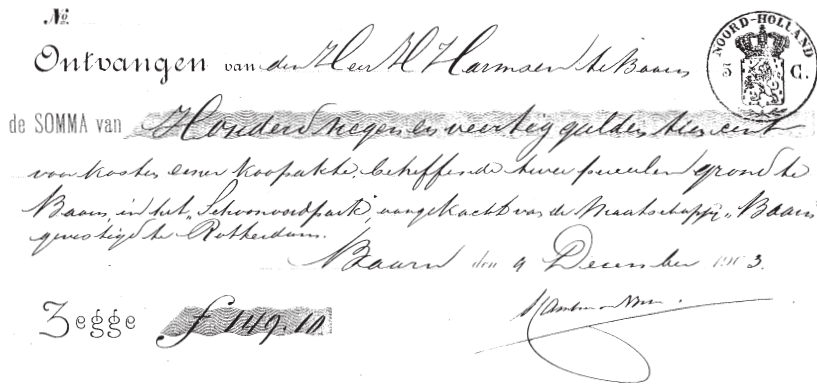 No.
NOORD-HOLLAND
5 C.
Ontvangen van den Heer H Harmsen te Baarn
de SOMMA van Honderd negen en veertig gulden tien cent
voor kosten eener koopakte, betreffende twee perceelen grond te
Baarn, in het "Schoonoordpark", aangekocht van de Maatschappij "Baarn"
gevestigd te Rotterdam.
Baarn den 9 December 1903.
Zegge f 149.10